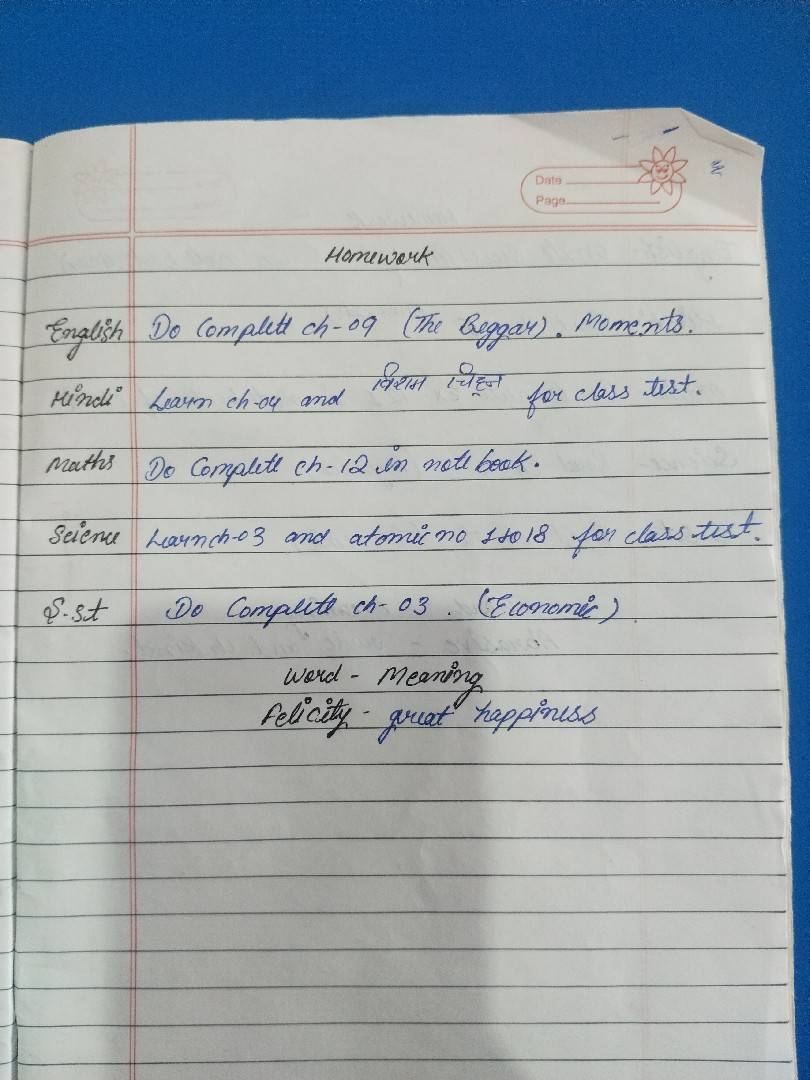 Date
Page
Homework
English Do Complete ch-09 (The Beggar). Moments.
Hindi Learn ch-04 and विराम चिह्न for class test.
Maths Do Complete ch-12 in note book.
Science Learn ch-03 and atomic no 1 to 18 for class test.
S.st Do Complete ch-03. (Economic)
Word - Meaning
Felicity - great happiness